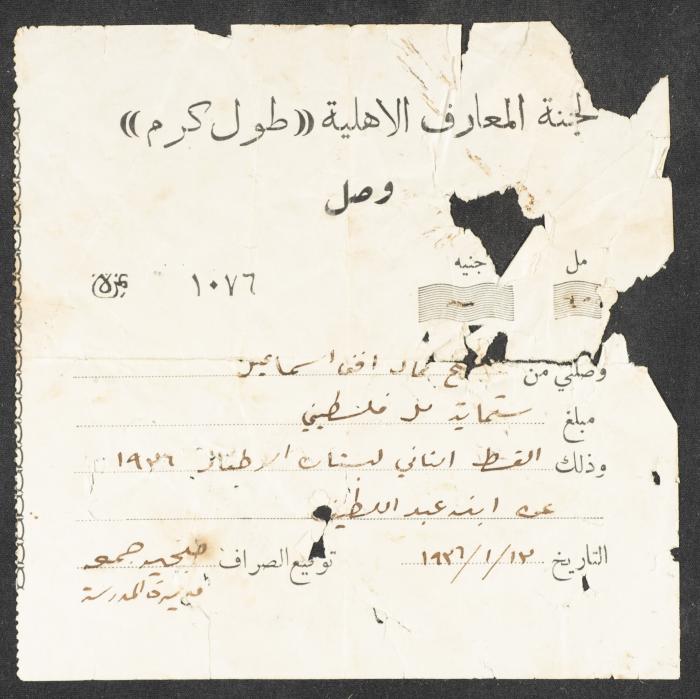 لجنة المعارف الاهلية ((طول كرم))
وصل
مل جنيه
١٠٧٦
وصلني من اسماعيل
مبلغ ستماية مل فلسطيني
وذلك القسط الثاني لبستان الاطفال ١٩٣٦
عن ابنه عبد اللطيف
التاريخ ١٩٣٦/١/١٣ توقيع الصراف
مديرة المدرسة